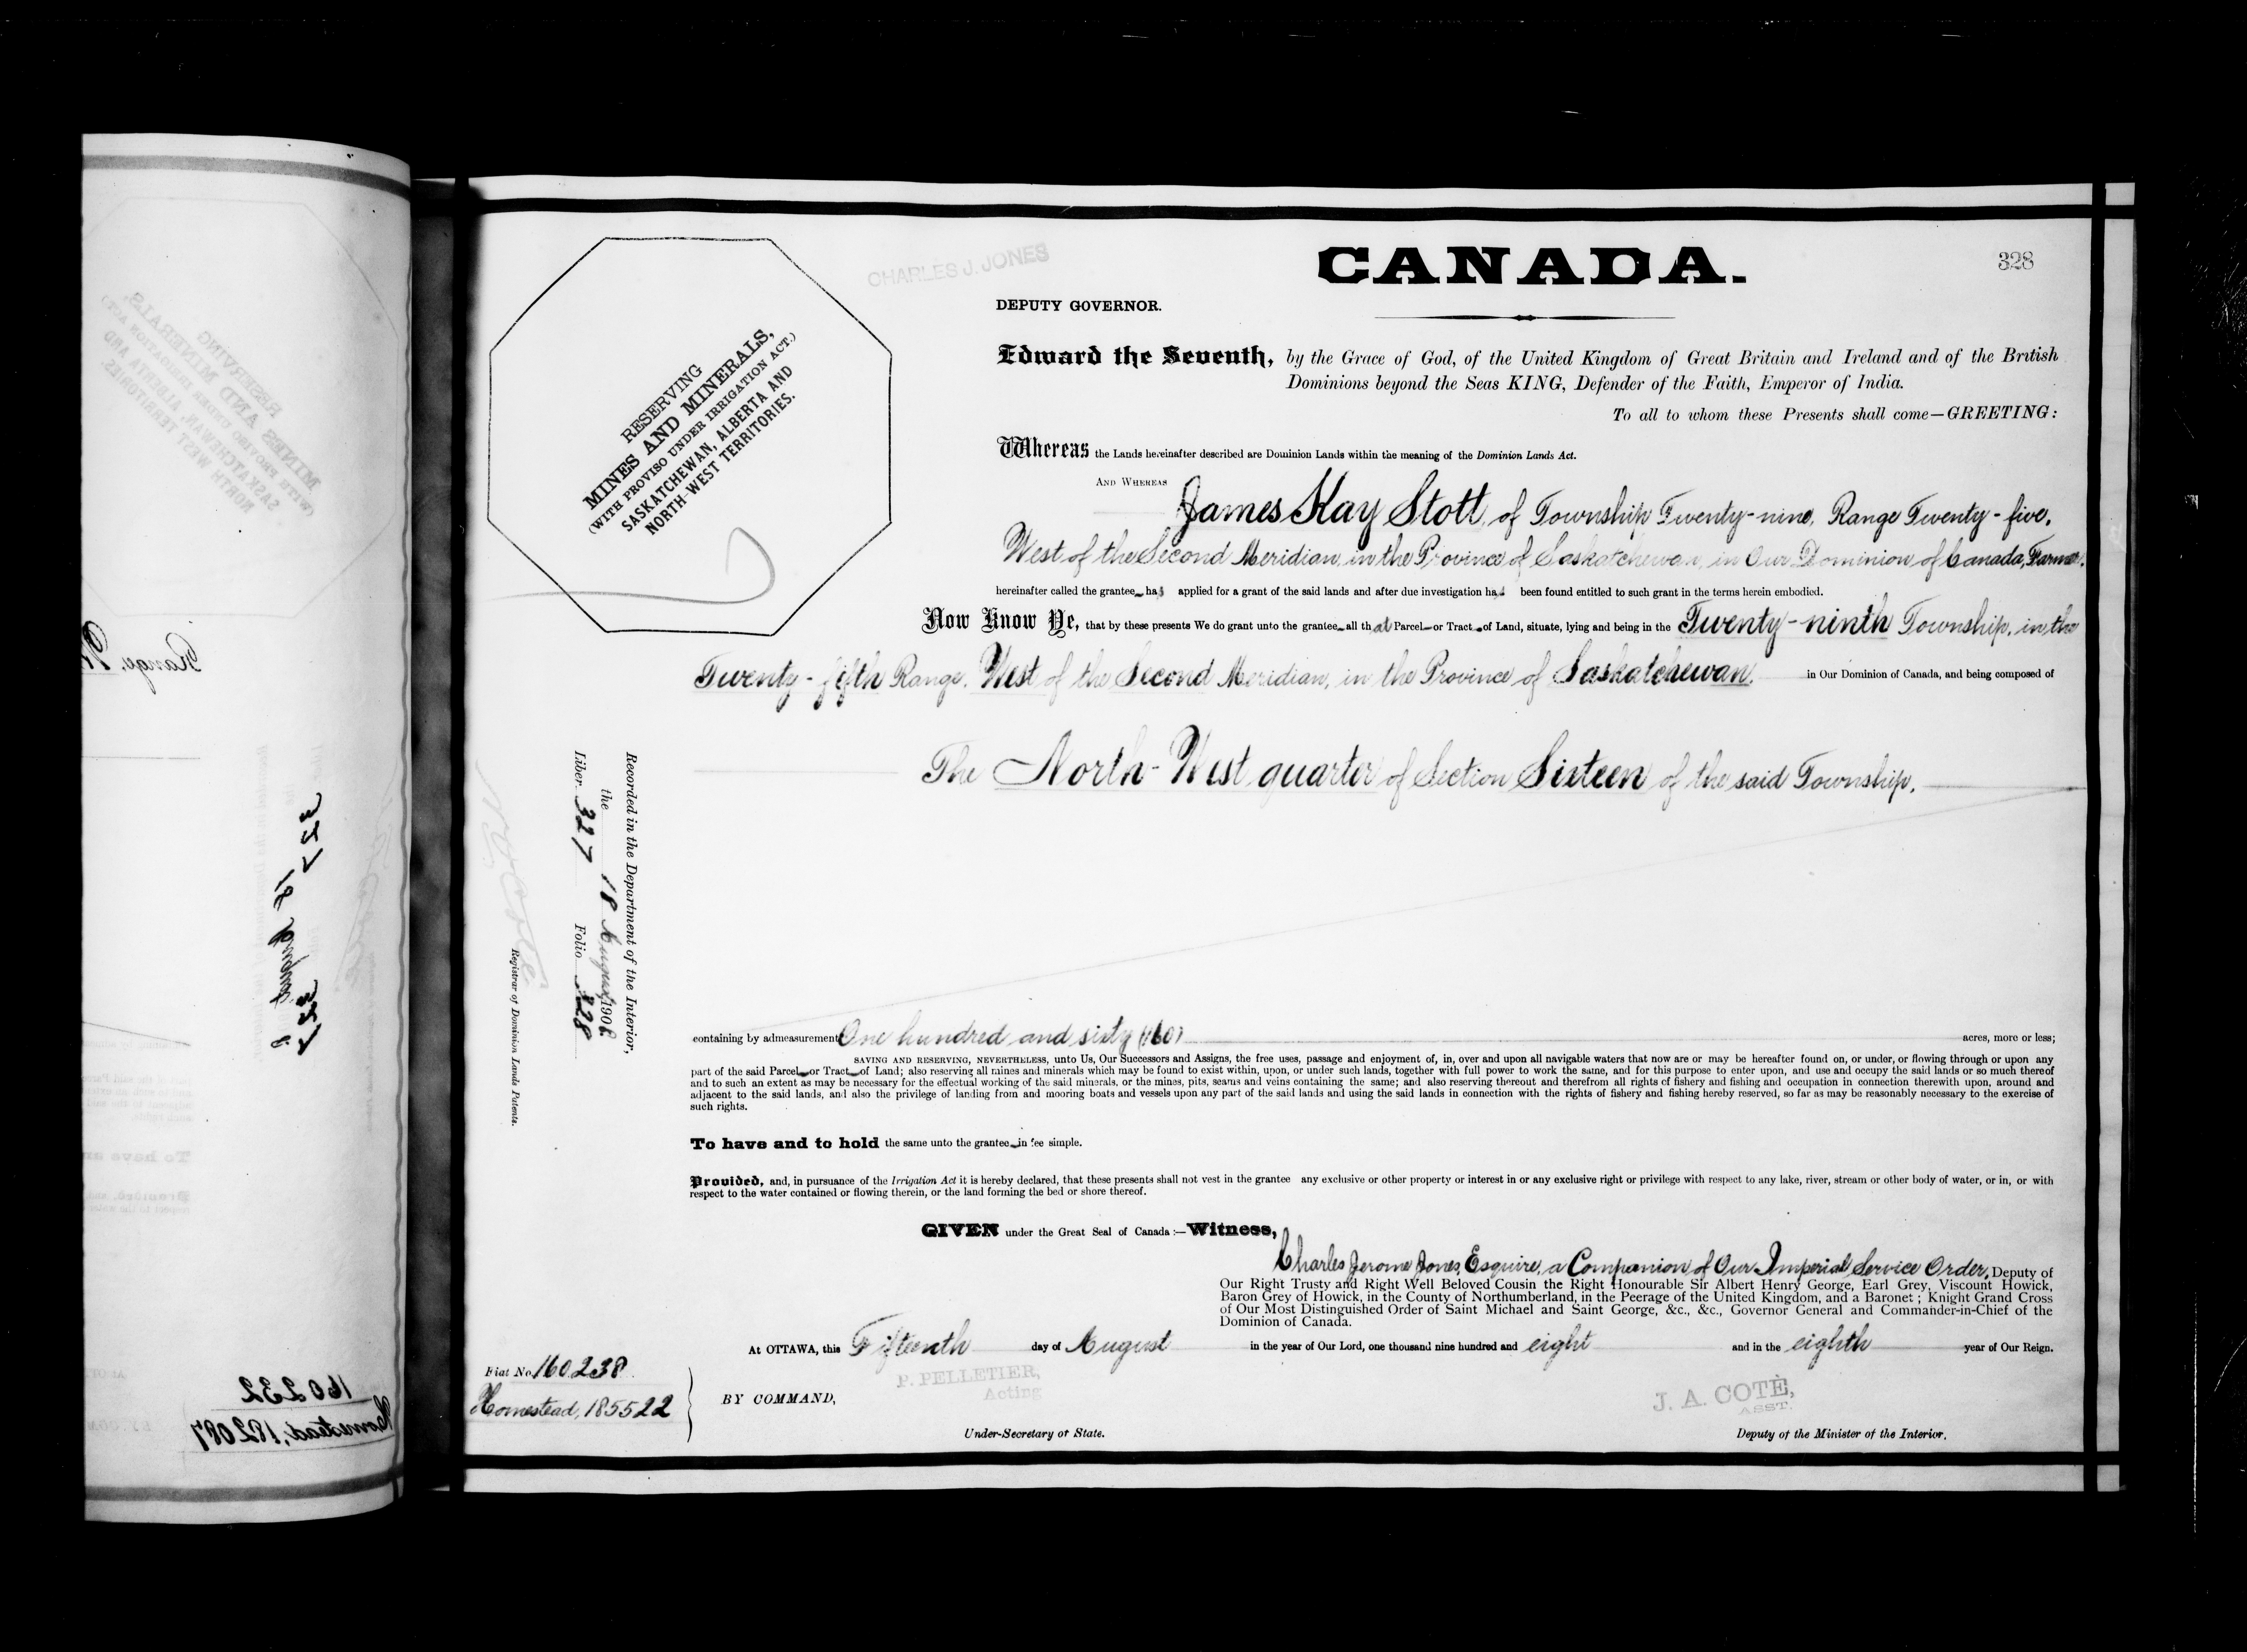 CANADA.
328
CHARLES J. JONES
DEPUTY GOVERNOR.
RESERVING
MINES AND MINERALS,
(WITH PROVISO UNDER IRRIGATION ACT.)
SASKATCHEWAN, ALBERTA AND
NORTH-WEST TERRITORIES.
Edward the Seventh, by the Grace of God, of the United Kingdom of Great Britain and Ireland and of the British
Dominions beyond the Seas KING, Defender of the Faith, Emperor of India.
To all to whom these Presents shall come—GREETING:
Whereas the Lands hereinafter described are Dominion Lands within the meaning of the Dominion Lands Act.
AND WHEREAS
James Kay Stott, of Township Twenty-nine, Range Twenty-five,
West of the Second Meridian, in the Province of Saskatchewan, in Our Dominion of Canada, Farmer.
hereinafter called the grantee has applied for a grant of the said lands and after due investigation has been found entitled to such grant in the terms herein embodied.
Now Know Ye, that by these presents We do grant unto the grantee all that Parcel or Tract of Land, situate, lying and being in the Twenty-ninth Township, in the
Twenty-fifth Range, West of the Second Meridian, in the Province of Saskatchewan. in Our Dominion of Canada, and being composed of
The North-West quarter of Section Sixteen of the said Township.
Recorded in the Department of the Interior,
the 18 August 1908
Liber 327 Folio 328
Registrar of Dominion Lands Patents.
containing by admeasurement One hundred and sixty (160) acres, more or less;
SAVING AND RESERVING, NEVERTHELESS, unto Us, Our Successors and Assigns, the free uses, passage and enjoyment of, in, over and upon all navigable waters that now are or may be hereafter found on, or under, or flowing through or upon any
part of the said Parcel or Tract of Land; also reserving all mines and minerals which may be found to exist within, upon, or under such lands, together with full power to work the same, and for this purpose to enter upon, and use and occupy the said lands or so much thereof
and to such an extent as may be necessary for the effectual working of the said minerals, or the mines, pits, seams and veins containing the same; and also reserving thereout and therefrom all rights of fishery and fishing and occupation in connection therewith upon, around and
adjacent to the said lands, and also the privilege of landing from and mooring boats and vessels upon any part of the said lands and using the said lands in connection with the rights of fishery and fishing hereby reserved, so far as may be reasonably necessary to the exercise of
such rights.
To have and to hold the same unto the grantee in fee simple.
Provided, and, in pursuance of the Irrigation Act it is hereby declared, that these presents shall not vest in the grantee any exclusive or other property or interest in or any exclusive right or privilege with respect to any lake, river, stream or other body of water, or in, or with
respect to the water contained or flowing therein, or the land forming the bed or shore thereof.
GIVEN under the Great Seal of Canada:—Witness,
Charles Jerome Jones, Esquire, a Companion of Our Imperial Service Order, Deputy of
Our Right Trusty and Right Well Beloved Cousin the Right Honourable Sir Albert Henry George, Earl Grey, Viscount Howick,
Baron Grey of Howick, in the County of Northumberland, in the Peerage of the United Kingdom, and a Baronet; Knight Grand Cross
of Our Most Distinguished Order of Saint Michael and Saint George, &c., &c., Governor General and Commander-in-Chief of the
Dominion of Canada.
At OTTAWA, this Fifteenth day of August in the year of Our Lord, one thousand nine hundred and eight and in the eighth year of Our Reign.
Fiat No. 160238
Homestead, 185522
BY COMMAND,
P. PELLETIER,
Acting
Under-Secretary of State.
J. A. COTÈ,
ASST.
Deputy of the Minister of the Interior.
160232
Homestead, 182087